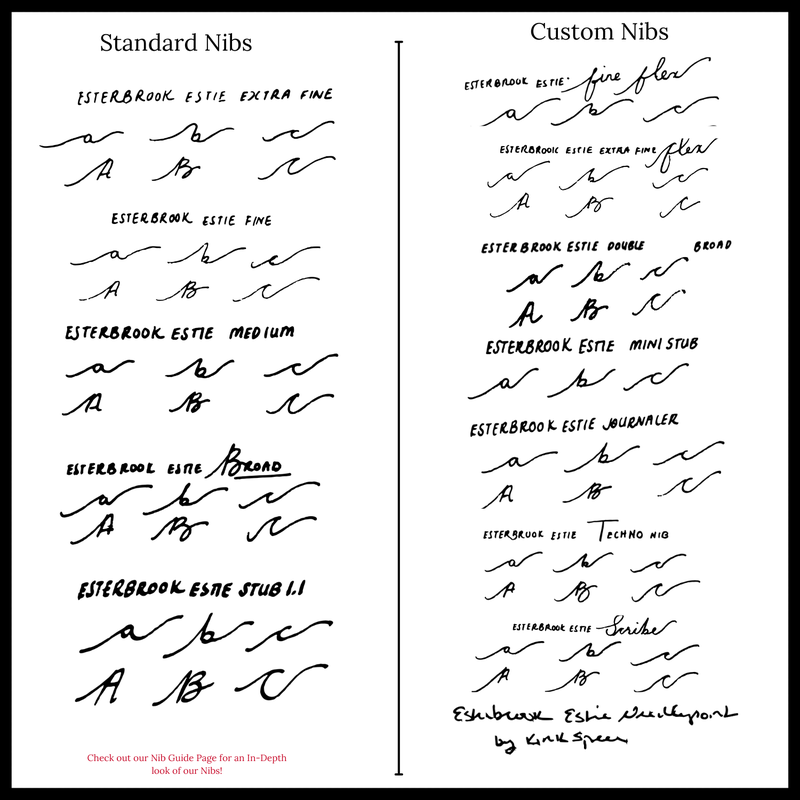 Standard Nibs
ESTERBROOK ESTIE EXTRA FINE
a b c
A B C
ESTERBROOK ESTIE FINE
a b c
A B C
ESTERBROOK ESTIE MEDIUM
a b c
A B C
ESTERBROOK ESTIE BROAD
a b c
A B C
ESTERBROOK ESTIE STUB 1.1
a b c
A B C
Check out our Nib Guide Page for an In-Depth
look of our Nibs!
Custom Nibs
ESTERBROOK ESTIE fine flex
a b c
ESTERBROOK ESTIE EXTRA FINE flex
a b c
A B C
ESTERBROOK ESTIE DOUBLE BROAD
a b c
A B C
ESTERBROOK ESTIE MINI STUB
a b c
ESTERBROOK ESTIE JOURNALER
a b c
A B C
ESTERBROOK ESTIE TECHNO NIB
a b c
A B C
ESTERBROOK ESTIE Scribe
a b c
A B C
Esterbrook Estie Needlepoint
by Kirk Speer